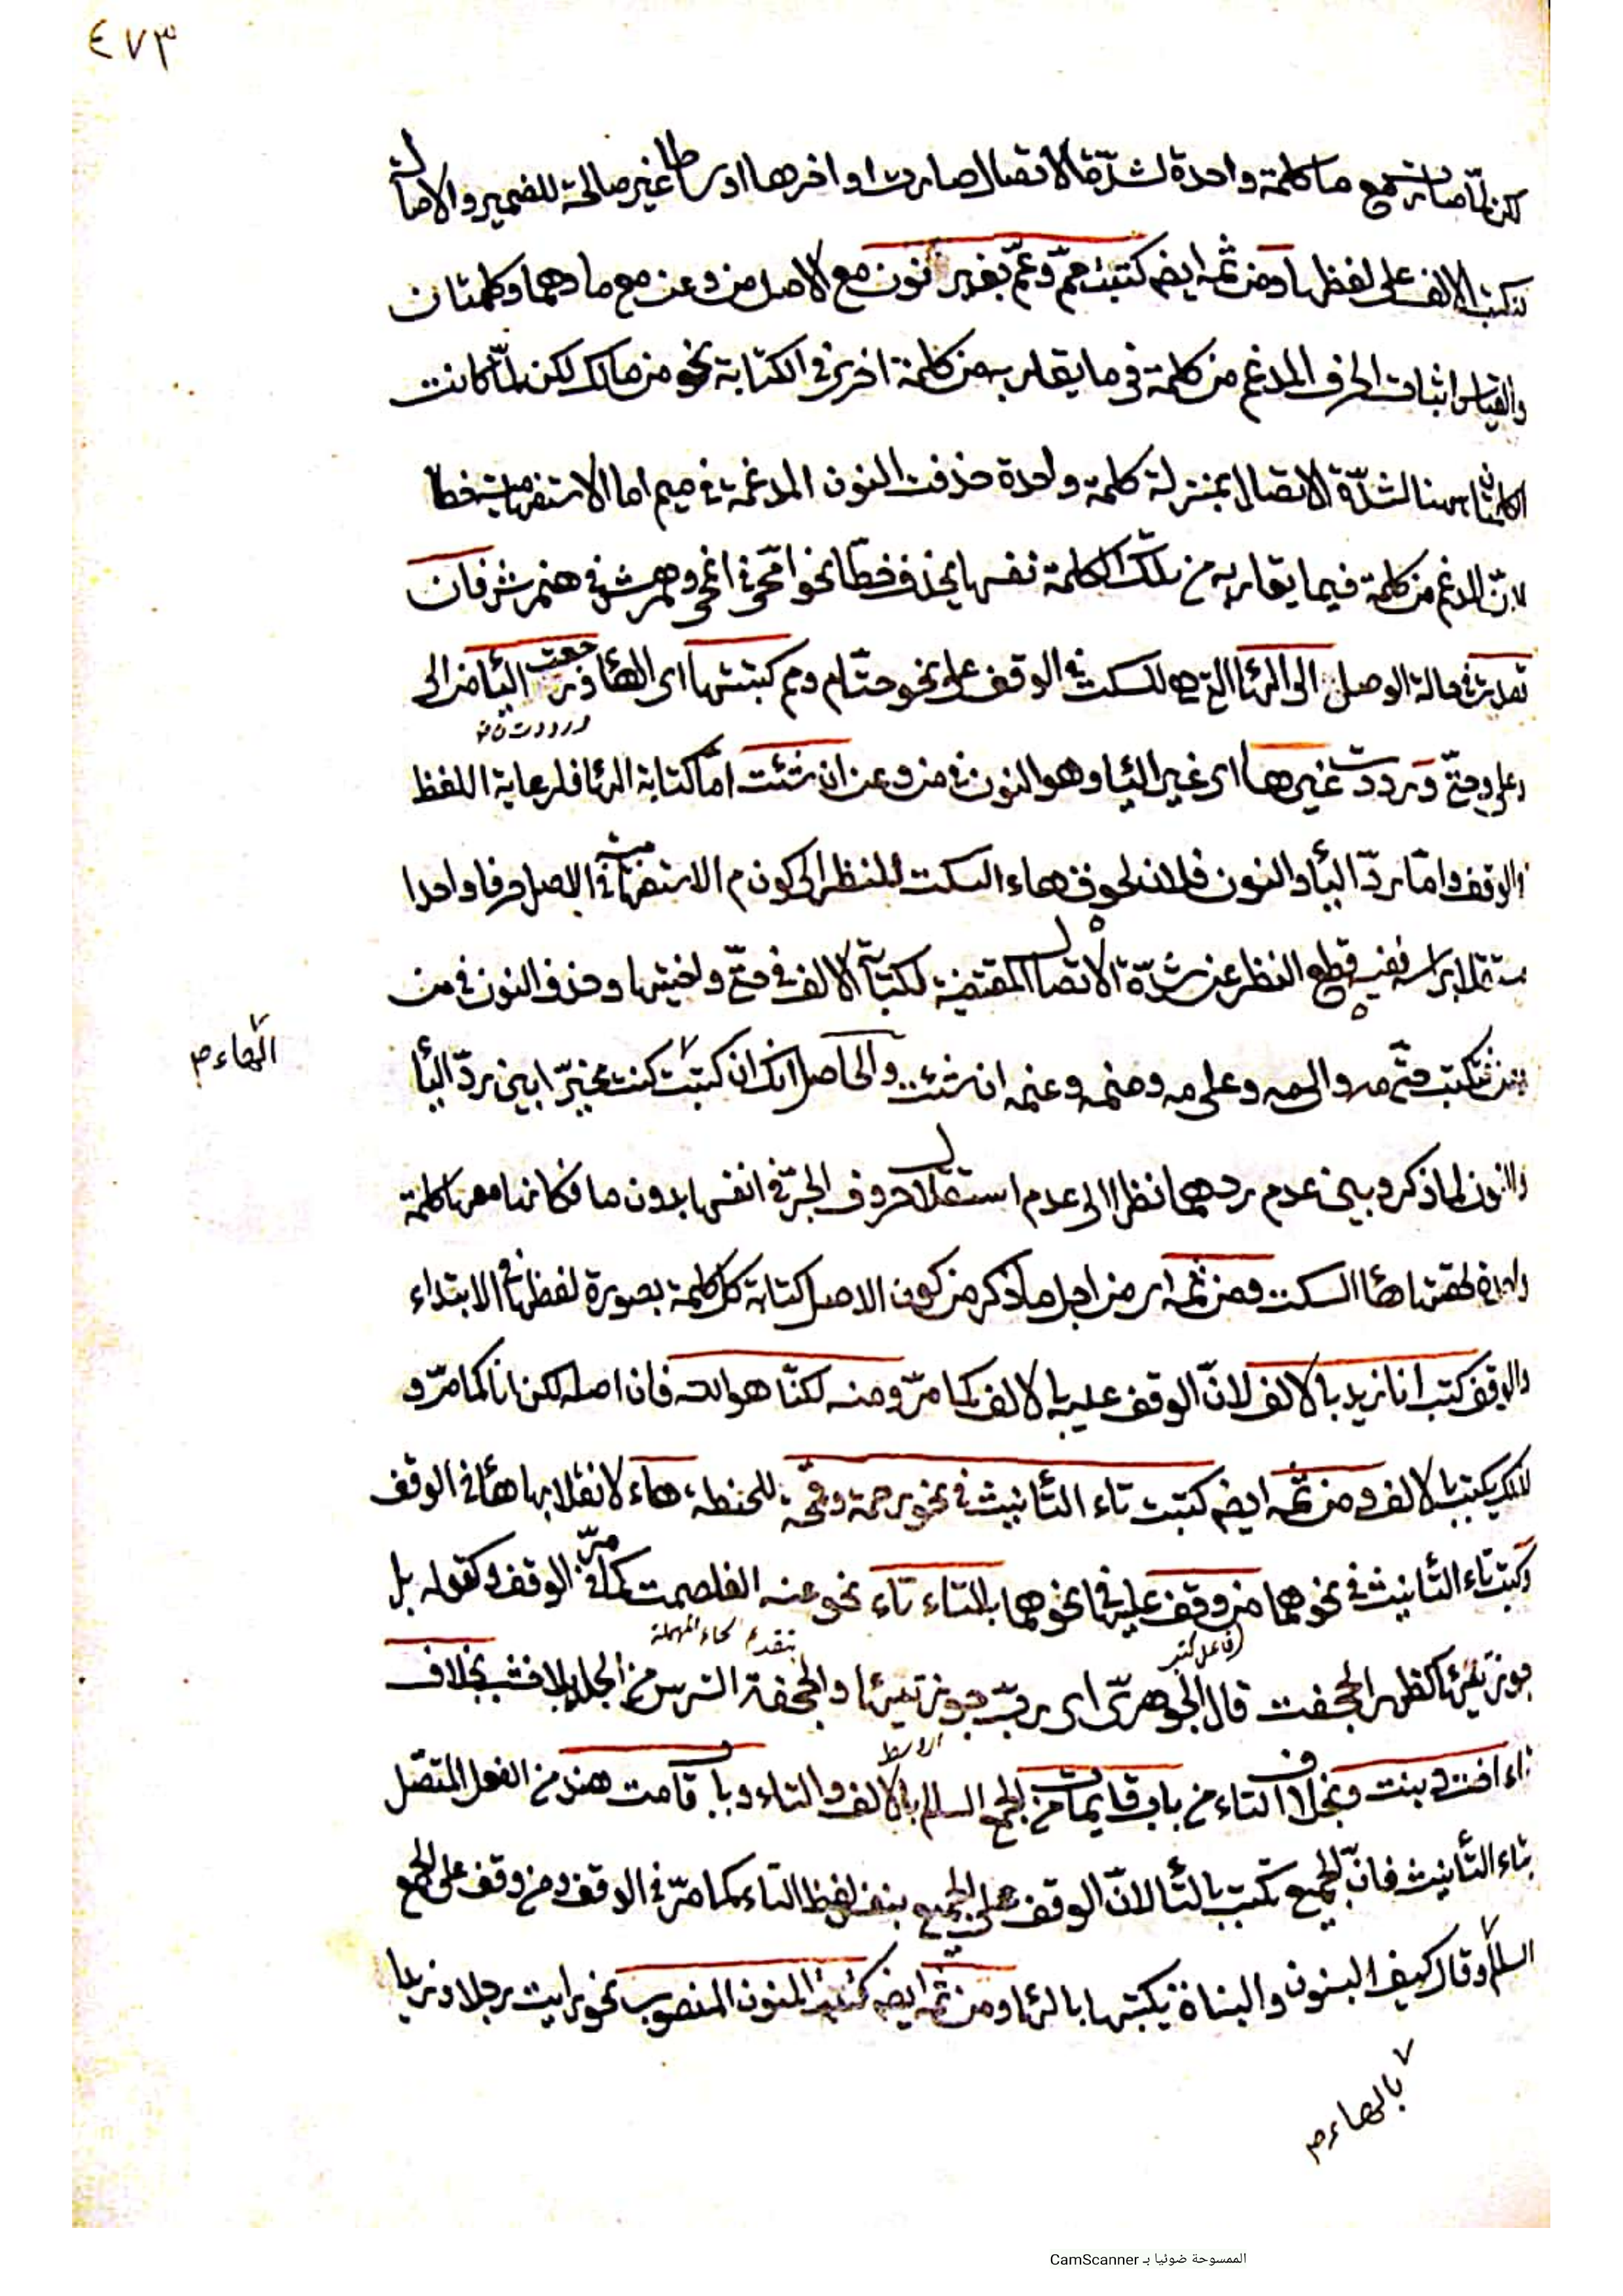 ٤٧٣
لكن لمّا صارت مع ما كلمة واحدة لشدّة الاتصال صارت اواخرها اوساطا غير صالحة للضمير والامالة
لتكتب الالف على لفظها ومن ثمه ايض كتبت ممّ وعمّ بغير نون مع الاصل من وعن مع ما وهما كلمتان
والقياس اثبات الحرف المدغم من كلمة في ما يقاربه من كلمة اخرى في الكتابة نحو من مالك لكن لمّا كانت
الكلمتان هنا لشدّة الاتصال بمنزلة كلمة واحدة حذفت النون المدغمة في ميم اما الاستفهامية خطا
لانّ المدغم من كلمة فيما يقاربه من تلك الكلمة نفسها يحذف خطّا نحو امّحى في انمحى وهمّرش في هنمرش فان
قصدت في حالة الوصل الى الهاء التي هي للسكت في الوقف على نحو حتّام ومم كتبتها اى الهاء ورجعت الياء في الى
ورددت
وعلى وحتّى ورددت غيرها اى غير الياء وهو النون في من وعن ان شئت امّا كتابة الهاء فلرعاية اللفظ
والوقف وامّا ردّ الياء والنون فلان لحوق هاء السكت للنظر الى كون م الاستفهامية في الاصل حرفا واحدا
مستقلا براسه ففيه قطع النظر عن شدّة الاتصال المقتضية لكتابة الالف في حتّى واختيها وحذف النون في من
الهاء م
وعن فتكتب حتّى مه والى مه وعلى مه ومن مه وعن مه ان شئت والحاصل انك ان كتبت كنت مخيّرا بين ردّ الياء
والنون لما ذكر وبين عدم ردهما نظرا الى عدم استقلال حروف الجرّ في انفسها بدون ما فكانها معها كلمة
واحدة لحقتها هاء السكت ومن ثمه اى من اجل ما ذكر من كون الاصل كتابة كل كلمة بصورة لفظها في الابتداء
والوقف كتب انا زيد بالالف لانّ الوقف عليه بالالف كما مرّ ومنه لكنّا هو الله فان اصله لكن انا كما مرّ و
لذلك يكتب بالالف ومن ثمه ايض كتبت تاء التأنيث في نحو رحمة وقمحة للحنطة هاء لانقلابها هاء في الوقف
وكتب تاء التأنيث في نحوهما من وقف عليه في نحوهما بالتاء تاء نحو عنه الغلصمت كما مرّ في الوقف وكقوله بل
فاعل كتب
بتقديم الحاء المهملة
جوز تيهاء كظهر الحجفت قال الجوهرىّ اى ربّ جوز تيهاء والحجفة الترس من الجلد بلا خشب بخلاف
تاء اخت وبنت وبخلاف التاء من باب قايمات من الجمع السالم بالالف والتاء وباب قامت هند من الفعل المتصّل
بتاء التأنيث فانّ الجميع تكتب بالتاء لانّ الوقف على الجميع بنفس لفظ التاء كما مرّ في الوقف ومن وقف على الجمع
السلم وقال كيف البنون والبناة يكتبها بالهاء ومن ثمه ايض كتب المنون المنصوب نحو رايت رجلا وزيدا
بالهاء م
الممسوحة ضوئيا بـ CamScanner